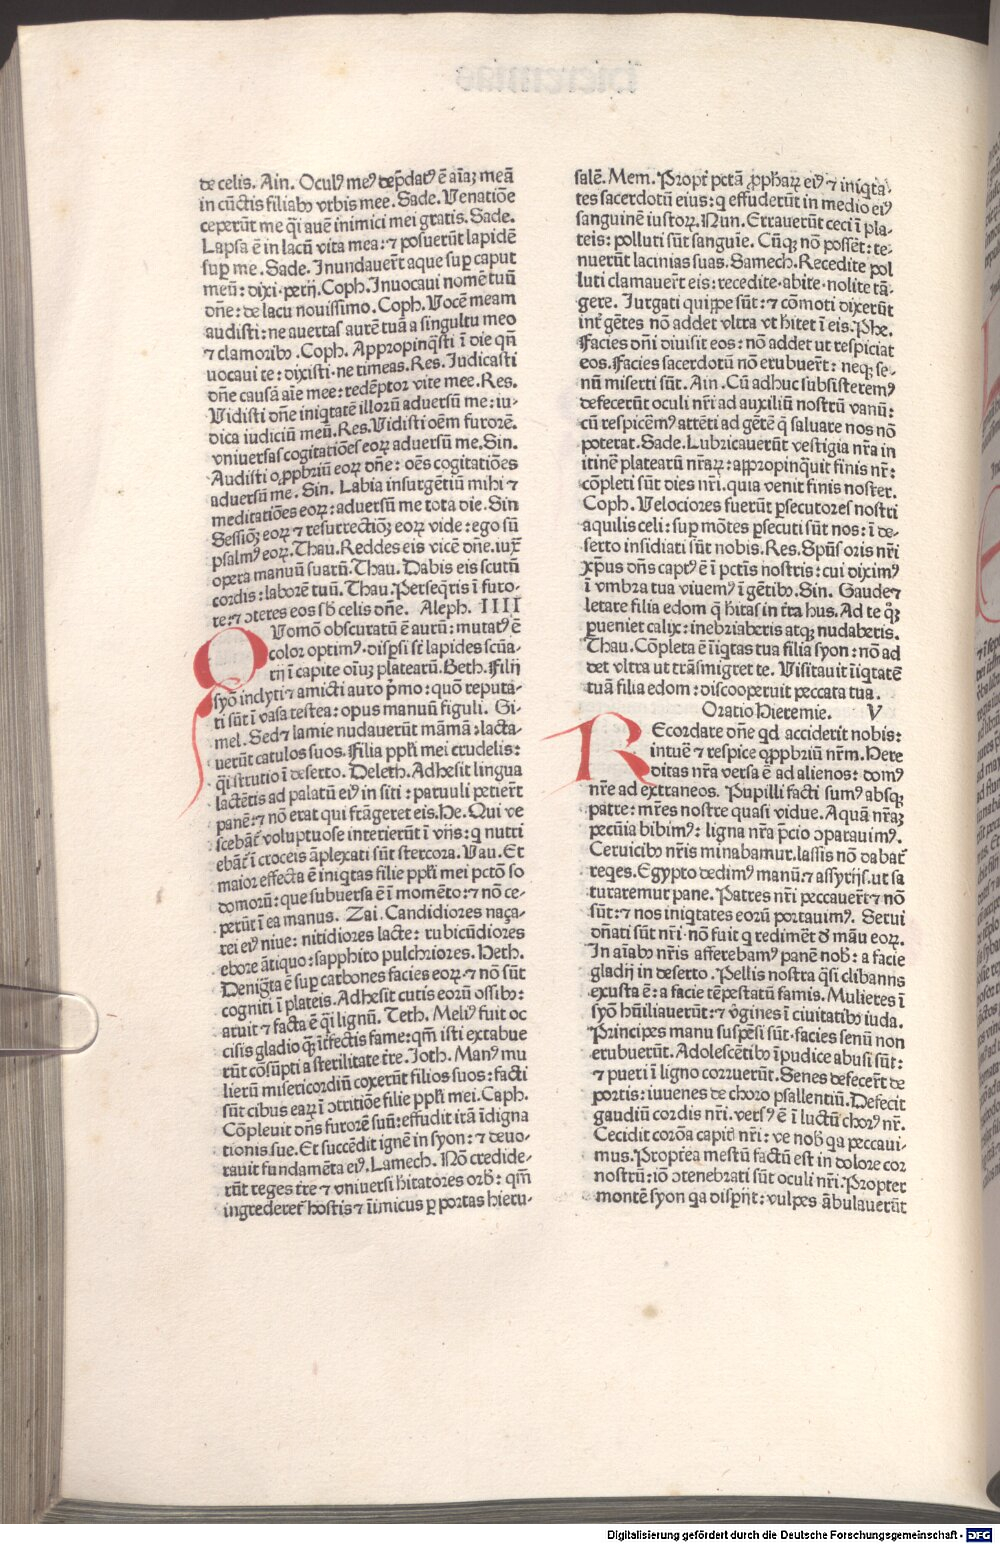 de celis. Ain. Oculꝰ meꝰ dep̄datꝰ ē aīaꝫ meā
in cūctis filiabꝰ vrbis mee. Sade. Venatiōe
ceperūt me q̄i auē inimici mei gratis. Sade.
Lapsa ē in lacū vita mea: ⁊ posuerūt lapidē
suꝑ me. Sade. Inundauer̄t aque suꝑ caput
meū: dixi · perij. Coph. Inuocaui nomē tuū
dn̄e: de lacu nouissimo. Coph. Vocē meam
audisti: ne auertas aurē tuā a singultu meo
⁊ clamoribꝰ. Coph. Appropinq̄sti ī die qn̄
uocaui te: dixisti · ne timeas. Res. Iudicasti
dn̄e causā aīe mee: redēptor vite mee. Res.
Vidisti dn̄e iniqtatē illorū aduersū me: iu-
dica iudiciū meū. Res. Vidisti oēm furorē.
vniuersas cogitatiōes eoꝝ aduersū me. Sin.
Audisti oꝓpbriū eoꝝ dn̄e: oēs cogitatiōes
aduersū me. Sin. Labia insurgētiū mihi ⁊
meditatiōes eoꝝ: aduersū me tota die. Sin
Sessiōꝫ eoꝝ ⁊ resurrectiōꝫ eoꝝ vide: ego sū
psalmꝰ eoꝝ. Thau. Reddes eis vicē dn̄e. iux̄
opera manuū suarū. Thau. Dabis eis scutū
cordis: laborē tuū. Thau. Perseq̄ris ī furo-
re: ⁊ ↄteres eos sb̄ celis dn̄e. Aleph. IIII
QVomō obscuratū ē aurū: mutatꝰ ē
color optimꝰ · disꝑsi st̄ lapides scūa-
rij ī capite oīuꝫ platearū. Beth. Filij
syō inclyti ⁊ amicti auro p̄mo: quō reputa-
ti sūt ī vasa testea: opus manuū figuli. Gi-
mel. Sed ⁊ lamie nudauerūt māmā: lacta-
uerūt catulos suos. Filia ppl̄i mei crudelis:
q̄i strutio ī deserto. Deleth. Adhesit lingua
lactētis ad palatū eiꝰ in siti: paruuli petier̄t
panē: ⁊ nō erat qui frāgeret eis. He. Qui ve
scebāt̄ voluptuose interierūt ī vijs: q nutri
ebāt̄ ī croceis āplexati sūt stercora. Vau. Et
maior effecta ē iniqtas filie ppl̄i mei pctō so
domorū: que subuersa ē ī momēto: ⁊ nō ce-
perūt ī ea manus. Zai. Candidiores naça-
rei eiꝰ niue: nitidiores lacte: rubicūdiores
ebore ātiquo: sapphiro pulchriores. Heth.
Denigᵃta ē suꝑ carbones facies eoꝝ ⁊ nō sūt
cogniti ī plateis. Adhesit cutis eorū ossibꝰ:
aruit ⁊ facta ē q̄i lignū. Teth. Meliꝰ fuit oc
cisis gladio qᷓꝫ īt̄fectis fame: qm̄ isti extabue
rūt cōsūpti a sterilitate tr̄e. Ioth. Manꝰ mu
lierū misericordiū coxerūt filios suos: facti
sūt cibus earꝝ ī ↄtritiōe filie ppl̄i mei. Caph.
Cōpleuit dn̄s furorē suū: effudit irā īdigna
tionis sue. Et succēdit ignē in syon: ⁊ deuo-
rauit fundamēta eiꝰ. Lamech. Nō credide-
rūt reges tr̄e ⁊ vniuersi hītatores orb̄: qm̄
ingrederet̄ hostis ⁊ īimicus ꝑ portas hieru-
salē. Mem. Propt̄ pctā ꝓph̄aꝝ eiꝰ ⁊ iniqta-
tes sacerdotū eius: q effuderūt in medio eiꝰ
sanguinē iustoꝝ. Nun. Errauerūt ceci ī pla-
teis: polluti sūt sanguīe. Cūqꝫ nō possēt: te-
nuerūt lacinias suas. Samech. Recedite pol
luti clamauer̄t eis: recedite · abite · nolite tā-
gere. Iurgati quippe sūt: ⁊ cōmoti dixerūt
int̄ gētes nō addet vltra vt hītet ī eis. Phe.
Facies dn̄i diuisit eos: nō addet ut respiciat
eos. Facies sacerdotū nō erubuer̄t: neqꝫ se-
nū miserti sūt. Ain. Cū adhuc subsisteremꝰ
defecerūt oculi nr̄i ad auxiliū nostrū vanū:
cū respicēmꝰ attēti ad gētē q̄ saluare nos nō
poterat. Sade. Lubricauerūt vestigia nr̄a in
itinē platearū nr̄aꝝ: appropinq̄uit finis nr̄:
cōpleti sūt dies nr̄i. quia venit finis noster.
Coph. Velociores fuerūt ꝑsecutores nostri
aquilis celi: suꝑ mōtes ꝑsecuti sūt nos: ī de-
serto insidiati sūt nobis. Res. Spūs oris nr̄i
xp̄us dn̄s captꝰ ē ī pctīs nostris: cui diximꝰ
ī vmbra tua viuemꝰ ī gētibꝰ. Sin. Gaude ⁊
letare filia edom q̄ hītas in tr̄a hus. Ad te qᷓꝫ
ꝑueniet calix: inebriaberis atqꝫ nudaberis.
Thau. Cōpleta ē īiqtas tua filia syon: nō ad
det vltra ut trāsmigret te. Visitauit īiqtatē
tuā filia edom: discooperuit peccata tua.
Oratio Hieremie. V
REcordare dn̄e qd acciderit nobis:
intuē ⁊ respice oꝓpbriū nr̄m. Here
ditas nr̄a versa ē ad alienos: domꝰ
nr̄e ad extraneos. Pupilli facti sumꝰ absqꝫ
patre: mr̄es nostre quasi vidue. Aquā nr̄aꝫ
pecūia bibimꝰ: ligna nr̄a p̄cio ↄparauimꝰ.
Ceruicibꝰ nr̄is minabamur. lassis nō dabat̄
reqes. Egypto dedimꝰ manū: ⁊ assyrijs. ut sa
turaremur pane. Patres nr̄i peccauer̄t ⁊ nō
sūt: ⁊ nos iniqtates eorū portauimꝰ. Serui
dn̄ati sūt nr̄i · nō fuit q redimēt d̄ māu eoꝝ.
In aīabꝰ nr̄is afferebamꝰ panē nob̄: a facie
gladij in deserto. Pellis nostra q̄si clibanns
exusta ē: a facie tēpestatū famis. Mulieres ī
syō hūiliauerūt: ⁊ v̄gines ī ciuitatibꝰ iuda.
Principes manu suspēsi sūt · facies senū non
erubuerūt. Adolescētibꝰ īpudice abusi sūt:
⁊ pueri ī ligno corruerūt. Senes defecer̄t de
portis: iuuenes de choro psallentiū. Defecit
gaudiū cordis nr̄i. versꝰ ē ī luctū chorꝰ nr̄.
Cecidit corōa capit̄ nr̄i: ve nob̄ qa peccaui-
mus. Proptrea mestū factū est in dolore cor
nostrū: iō ↄtenebrati sūt oculi nr̄i. Propter
montē syon qa disꝑijt: vulpes ābulauerūt
Digitalisierung gefördert durch die Deutsche Forschungsgemeinschaft - DFG